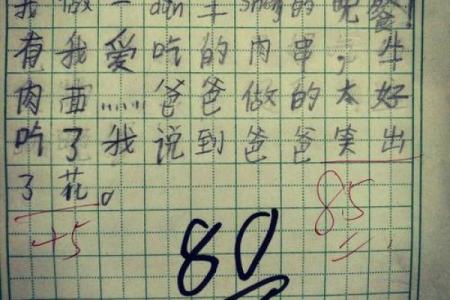 我做一dùn丰shèng的晚餐!
有我爱吃的肉串,牛
肉面……爸爸做的太好
吃了我说到爸爸実出
了花。
+5
85
80